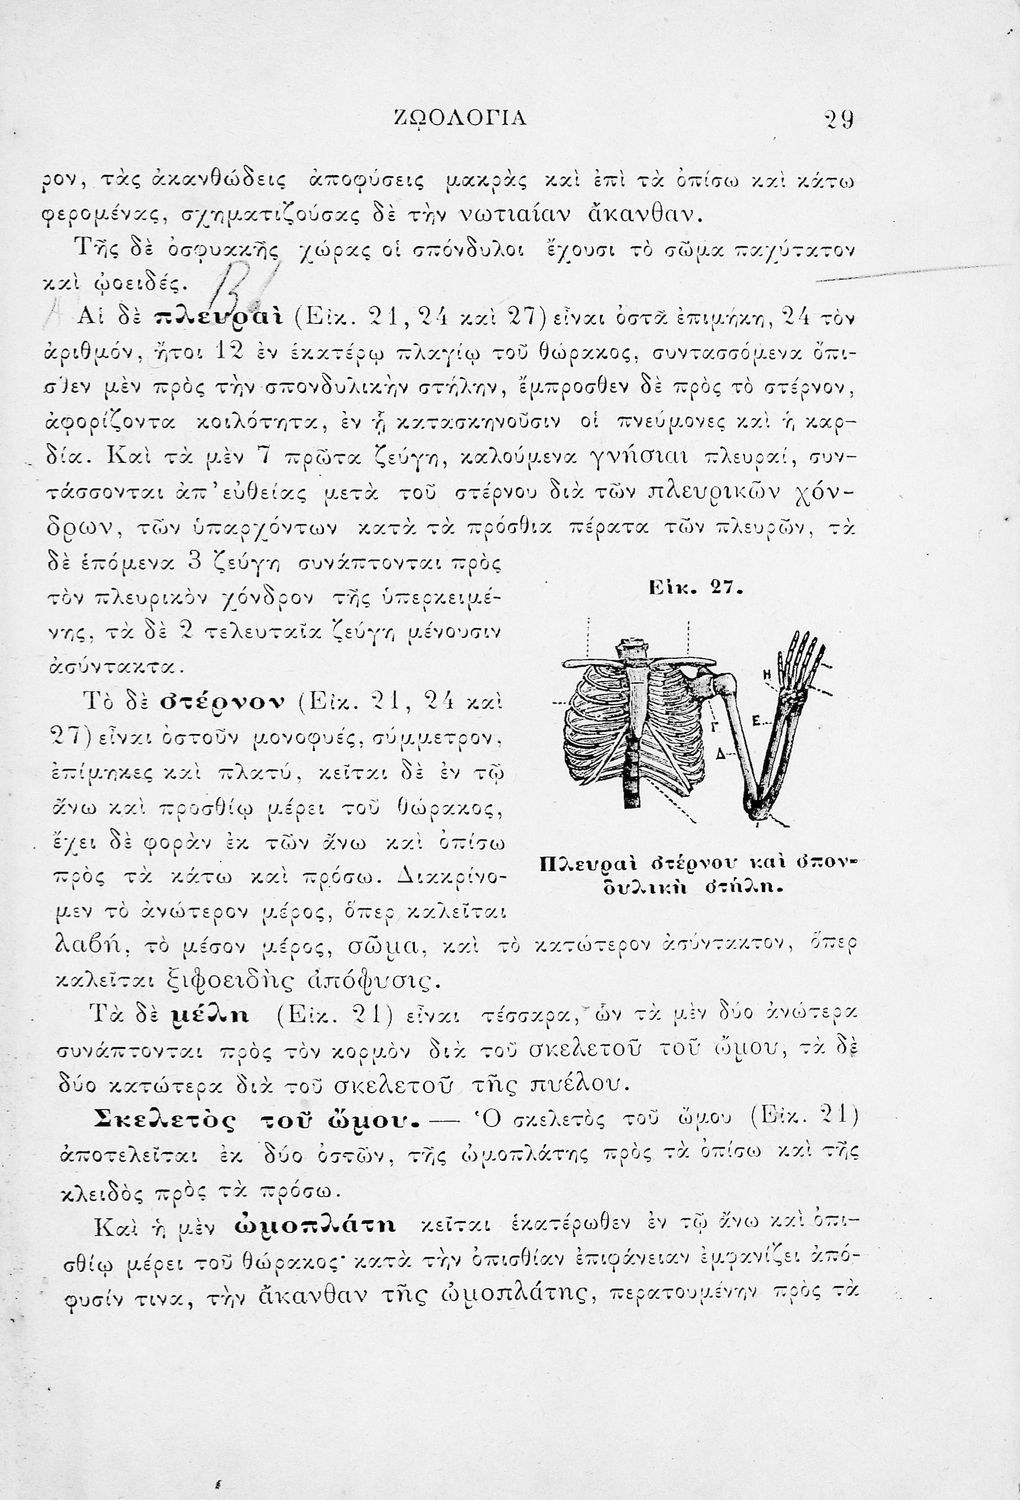 ΖΩΟΛΟΓΙΑ 29
ρον, τὰς ἀκανθώδεις ἀποφύσεις μακρὰς καὶ ἐπὶ τὰ ὀπίσω καὶ κάτω
φερομένας, σχηματιζούσας δὲ τὴν νωτιαίαν ἄκανθαν.
Τῆς δὲ ὀσφυακῆς χώρας οἱ σπόνδυλοι ἔχουσι τὸ σῶμα παχύτατον
καὶ ᾠοειδές.
Αἱ δὲ πλευραὶ (Εἰκ. 21, 24 καὶ 27) εἶναι ὀστᾶ ἐπιμήκη, 24 τὸν
ἀριθμόν, ἤτοι 12 ἐν ἑκατέρῳ πλαγίῳ τοῦ θώρακος, συντασσόμενα ὄπι-
σθεν μὲν πρὸς τὴν σπονδυλικὴν στήλην, ἔμπροσθεν δὲ πρὸς τὸ στέρνον,
ἀφορίζοντα κοιλότητα, ἐν ᾗ κατασκηνοῦσιν οἱ πνεύμονες καὶ ἡ καρ-
δία. Καὶ τὰ μὲν 7 πρῶτα ζεύγη, καλούμενα γνήσιαι πλευραί, συν-
τάσσονται ἀπ' εὐθείας μετὰ τοῦ στέρνου διὰ τῶν πλευρικῶν χόν-
δρων, τῶν ὑπαρχόντων κατὰ τὰ πρόσθια πέρατα τῶν πλευρῶν, τὰ
δὲ ἑπόμενα 3 ζεύγη συνάπτονται πρὸς
τὸν πλευρικὸν χόνδρον τῆς ὑπερκειμέ-
νης, τὰ δὲ 2 τελευταῖα ζεύγη μένουσιν
ἀσύντακτα.
Τὸ δὲ στέρνον (Εἰκ. 21, 24 καὶ
27) εἶναι ὀστοῦν μονοφυές, σύμμετρον,
ἐπίμηκες καὶ πλατύ, κεῖται δὲ ἐν τῷ
ἄνω καὶ προσθίῳ μέρει τοῦ θώρακος,
ἔχει δὲ φορὰν ἐκ τῶν ἄνω καὶ ὀπίσω
πρὸς τὰ κάτω καὶ πρόσω. Διακρίνο-
μεν τὸ ἀνώτερον μέρος, ὅπερ καλεῖται
Εἰκ. 27.
Η
Ε
Γ
Δ
Πλευραὶ στέρνου καὶ σπον-
δυλικὴ στήλη.
λαβή, τὸ μέσον μέρος, σῶμα, καὶ τὸ κατώτερον ἀσύντακτον, ὅπερ
καλεῖται ξιφοειδὴς ἀπόφυσις.
Τὰ δὲ μέλη (Εἰκ. 21) εἶναι τέσσαρα, ὧν τὰ μὲν δύο ἀνώτερα
συνάπτονται πρὸς τὸν κορμὸν διὰ τοῦ σκελετοῦ τοῦ ὤμου, τὰ δὲ
δύο κατώτερα διὰ τοῦ σκελετοῦ τῆς πυέλου.
Σκελετὸς τοῦ ὤμου. — Ὁ σκελετὸς τοῦ ὤμου (Εἰκ. 21)
ἀποτελεῖται ἐκ δύο ὀστῶν, τῆς ὠμοπλάτης πρὸς τὰ ὀπίσω καὶ τῆς
κλειδὸς πρὸς τὰ πρόσω.
Καὶ ἡ μὲν ὠμοπλάτη κεῖται ἑκατέρωθεν ἐν τῷ ἄνω καὶ ὀπι-
σθίῳ μέρει τοῦ θώρακος· κατὰ τὴν ὀπισθίαν ἐπιφάνειαν ἐμφανίζει ἀπό-
φυσίν τινα, τὴν ἄκανθαν τῆς ὠμοπλάτης, περατουμένην πρὸς τὰ